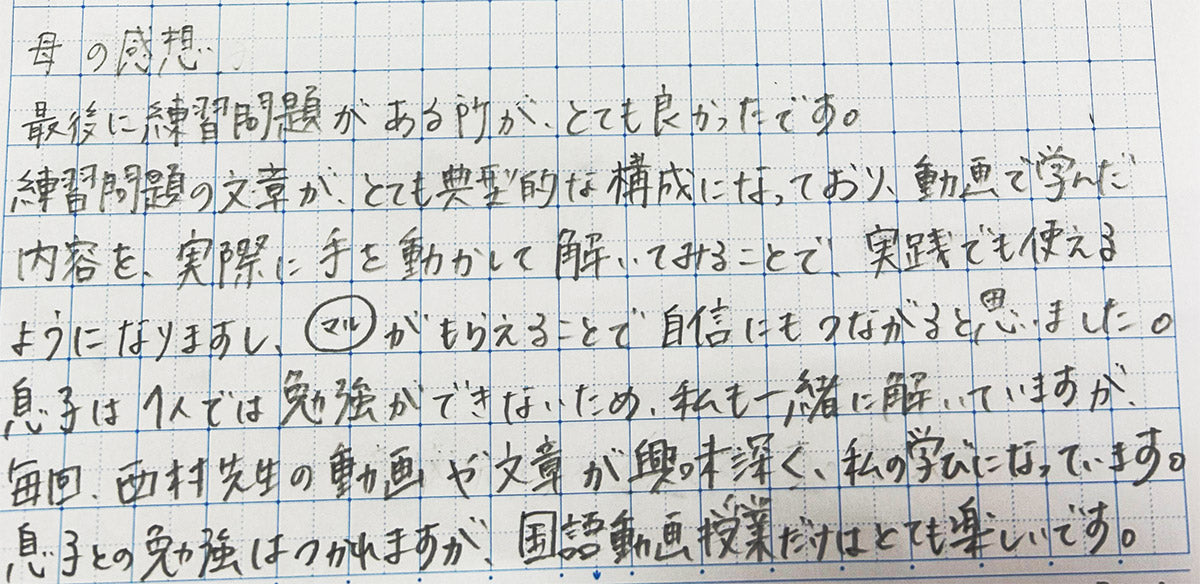 母の感想
最後に練習問題がある所が、とても良かったです。
練習問題の文章が、とても典型的な構成になっており、動画で学んだ
内容を、実際に手を動かして解いてみることで、実践でも使える
ようになりますし、マルがもらえることで自信にもつながると思いました。
息子は1人では勉強ができないため、私も一緒に解いていますが、
毎回、西村先生の動画や文章が興味深く、私の学びになっています。
息子との勉強はつかれますが、国語動画授業だけはとても楽しいです。